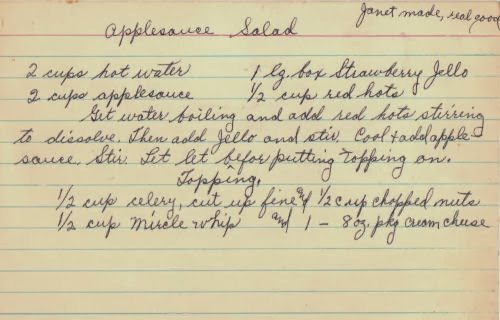 Janet made, real good
Applesauce Salad
2 cups hot water 1 lg. box Strawberry Jello
2 cups applesauce 1/2 cup red hots
Get water boiling and add red hots stirring
to dissolve. Then add Jello and stir. Cool + add apple-
sauce. Stir. Let let befor putting topping on.
Topping.
1/2 cup celery, cut up fine and 1/2 cup chopped nuts
1/2 cup Mircle Whip and 1 - 8 oz. pkg cream cheese